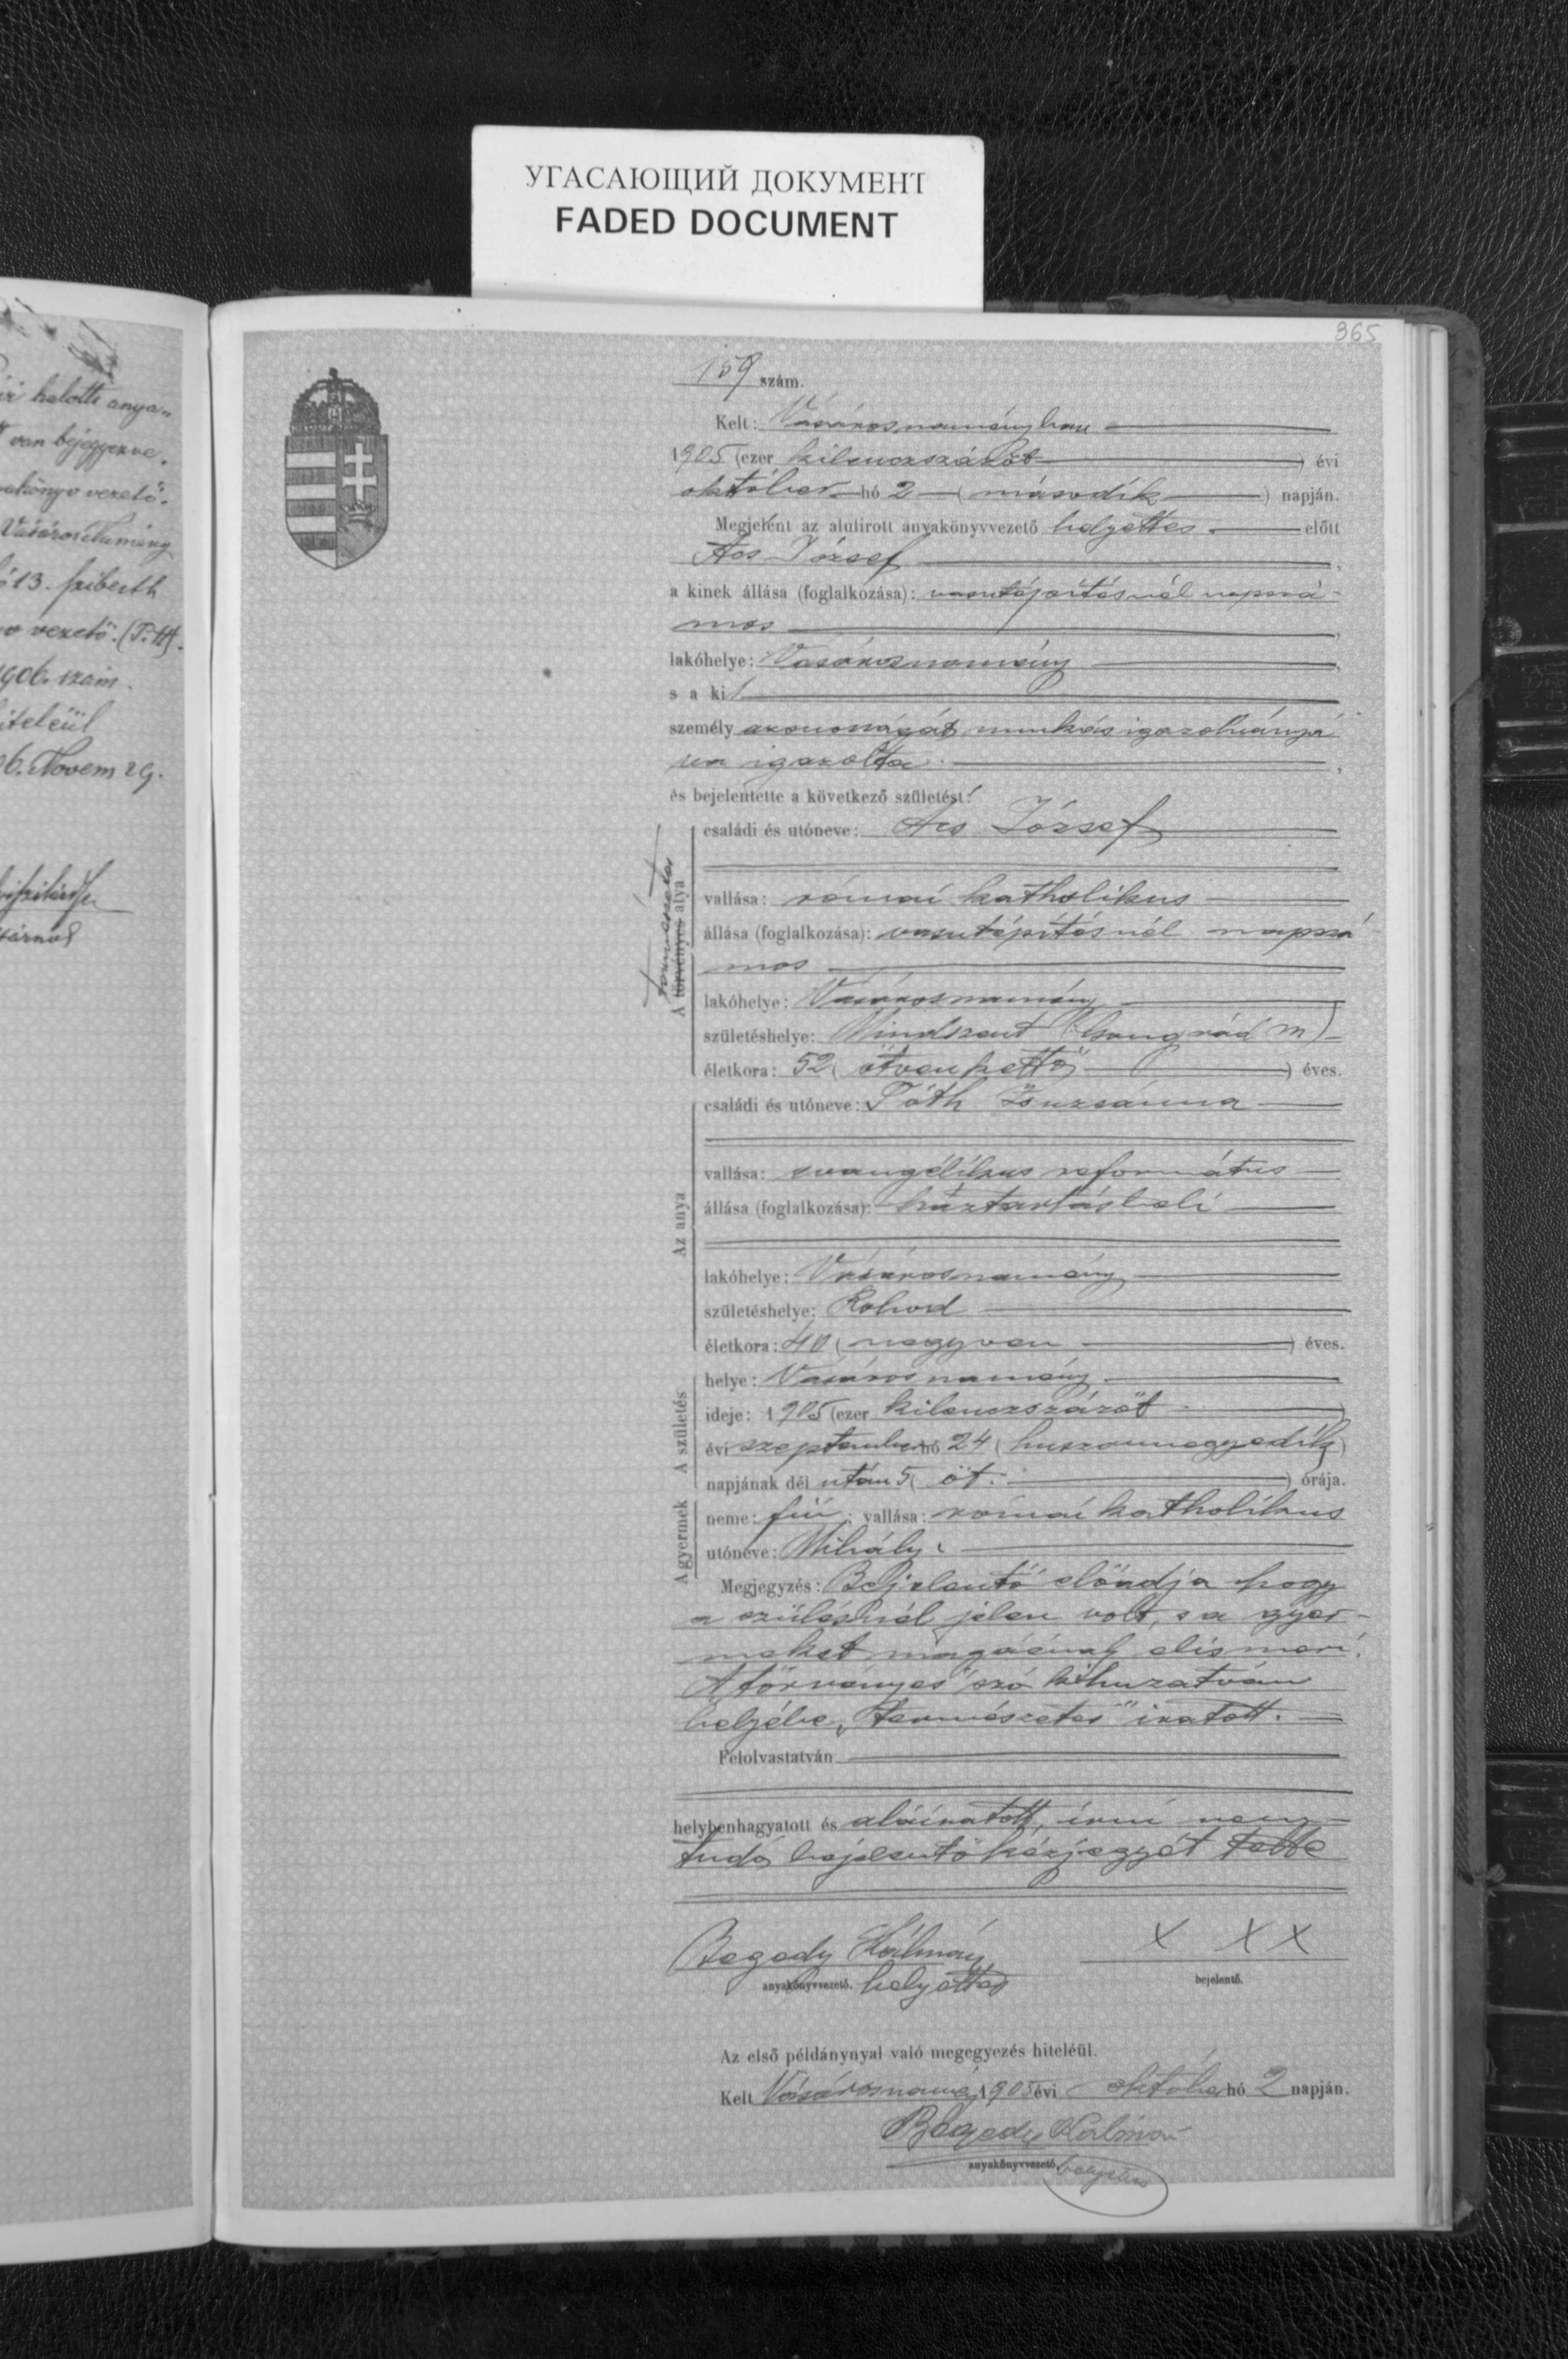 УГАСАЮЩИЙ ДОКУМЕНТ
FADED DOCUMENT
365
halotti anya„
van bejegyezve.
vezető.
Vásárosnamény
13.
vezető. (P.H.)
1906. szám.
hiteléül
Novem 29.
159 szám.
Kelt: Vásárosnaményban
1905 (ezer kilenczszázöt ) évi
október hó 2 (második ) napján.
Megjelent az alulirott anyakönyvvezető helyettes előtt
Ács József
a kinek állása (foglalkozása): vasutépítésnél napszá-
mos
lakóhelye: Vásárosnamény
s a ki
személy azonosságát munkás igazolványá
val igazolta
és bejelentette a következő születést:
A törvényes atya
természetes
családi és utóneve: Ács József
vallása: római katholikus
állása (foglalkozása): vasutépítésnél napszá-
mos
lakóhelye: Vásárosnamény
születéshelye: Mindszent (Csongrád m)
életkora: 52 (ötvenkettő ) éves.
Az anya
családi és utóneve: Tóth Zsuzsánna
vallása: evangélikus református
állása (foglalkozása): háztartásbeli
lakóhelye: Vásárosnamény
születéshelye: Rohod
életkora: 40 (negyven ) éves.
A születés
helye: Vásárosnamény
ideje: 1905 (ezer kilenczszázöt )
évi szeptember hó 24 (huszonnegyedik)
napjának dél után 5 (öt. ) órája.
A gyermek
neme: fiú; vallása: római katholikus
utóneve: Mihály
Megjegyzés: Bejelentő előadja hogy
a szülésnél jelen volt, s a gyer-
meket magáénak elismeri.
A „törvényes" szó kihuzatván
helyébe „természetes" iratott.
Felolvastatván
helybenhagyatott és aláiratott, írni nem
tudó bejelentő kézjegyét tette
Bagody Kálmán X X X
anyakönyvvezető. helyettes bejelentő.
Az első példánynyal való megegyezés hiteléül.
Kelt Vásárosnamé 1905 évi október hó 2 napján.
Bagody Kálmán
anyakönyvvezető helyettes